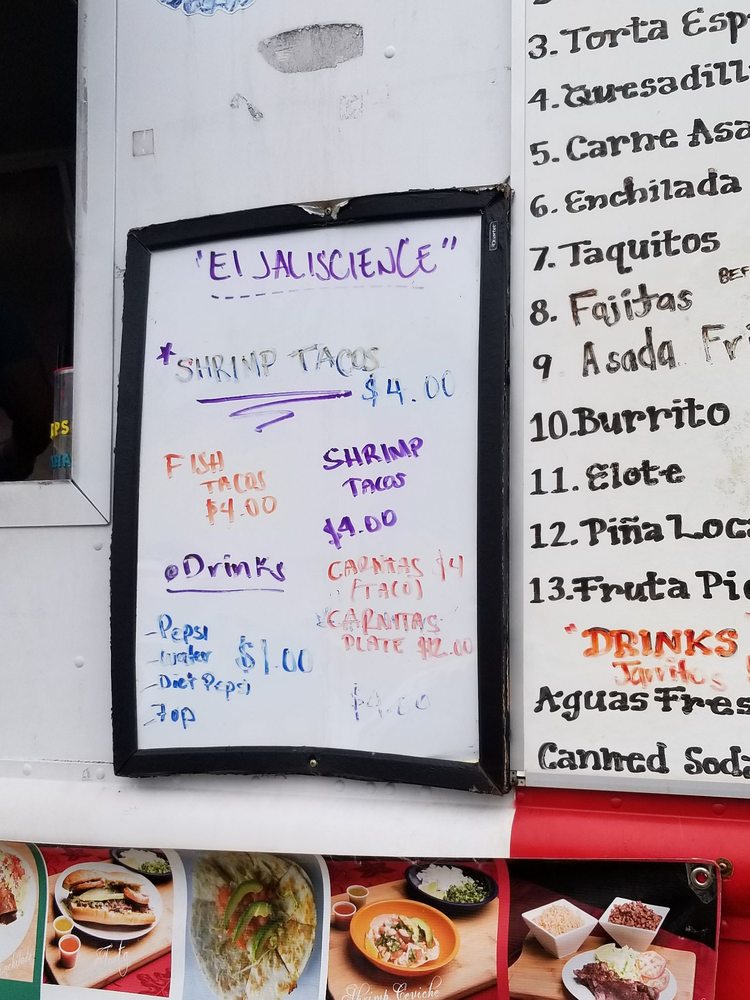 "El JALISCIENCE"
*SHRIMP TACOS
$4.00
FISH
TACOS
$4.00
SHRIMP
TACOS
$4.00
Drinks
CARNITAS $4
(TACO)
CARNITAS
PLATE $12.00
-Pepsi
-water
-Diet Pepsi
-7up
$1.00
$4.00
3. Torta Esp
4. Quesadill
5. Carne Asa
6. Enchilada
7. Taquitos
BEF
8. Fajitas
9 Asada Fri
10. Burrito
11. Elote
12. Piña Loca
13. Fruta Pic
"DRINKS
Jarritos
Aguas Fres
Canned Soda
Shrimp Ceviche